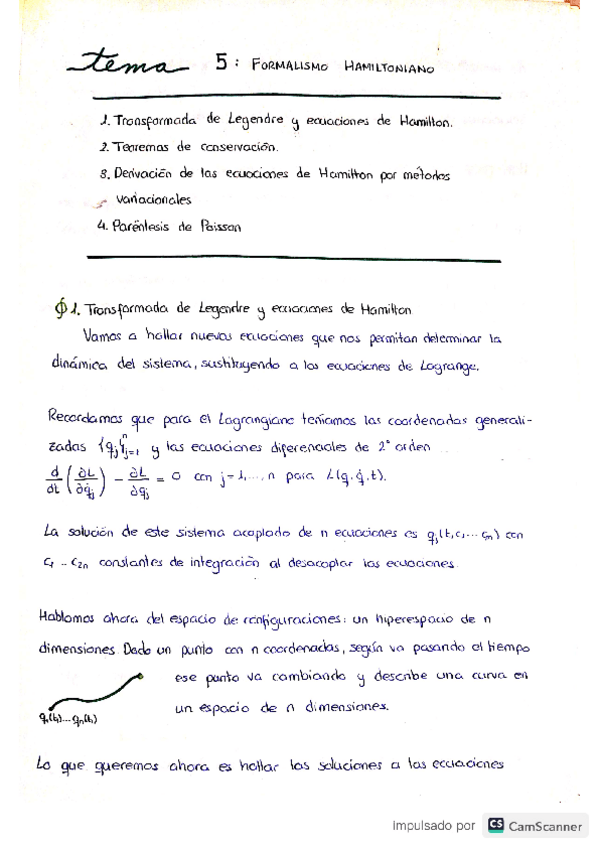 tema 5: FORMALISMO HAMILTONIANO
1. Transformada de Legendre y ecuaciones de Hamilton.
2. Teoremas de conservación.
3. Derivación de las ecuaciones de Hamilton por métodos
variacionales
4. Paréntesis de Poisson
1. Transformada de Legendre y ecuaciones de Hamilton
Vamos a hallar nuevas ecuaciones que nos permitan determinar la
dinámica del sistema, sustituyendo a las ecuaciones de Lagrange.
Recordamos que para el Lagrangiano teníamos las coordenadas generali-
zadas {qj}ⁿj=1 y las ecuaciones diferenciales de 2º orden
d/dt (∂L/∂q̇j) - ∂L/∂qj = 0 con j=1,...,n para L(q,q̇,t).
La solución de este sistema acoplado de n ecuaciones es qj(t,c1...cn) con
c1...c2n constantes de integración al desacoplar las ecuaciones.
Hablamos ahora del espacio de configuraciones: un hiperespacio de n
dimensiones. Dado un punto con n coordenadas, según va pasando el tiempo
ese punto va cambiando y describe una curva en
un espacio de n dimensiones.
q1(t1)...qn(t1)
Lo que queremos ahora es hallar las soluciones a las ecuaciones
Impulsado por CS CamScanner